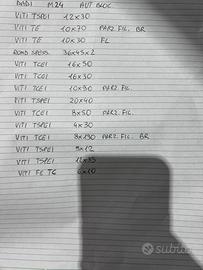 DADI M24 AUT BLOC.
VITI TSPEI 12x30
VITI TE 10x70 PARZ. FIL. BR
VITI TE 10x30 F.L.
ROND SPESS. 36x45x2
VITI TCEI 16x50
VITI TCEI 16x30
VITI TCEI 10x90 PARZ. FIL.
VITI TSPEI 20x40
VITI TCEI 8x50 PARZ. FIL
VITI TSPEI 4x30
VITI TCEI 8x130 PARZ. FIL. BR
VITI TSPEI 5x12
VITI TSPEI
VITI FE TG 6x10
subito